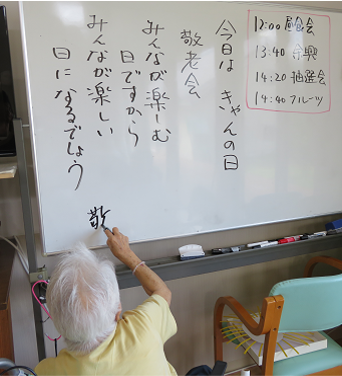 12:00 昼食会
13:40 余興
14:20 抽選会
14:40 フルーツ
今日は きゃんの日
敬老会
みんなが楽しむ
日ですから
みんなが楽しい
日になるでしょう
敬